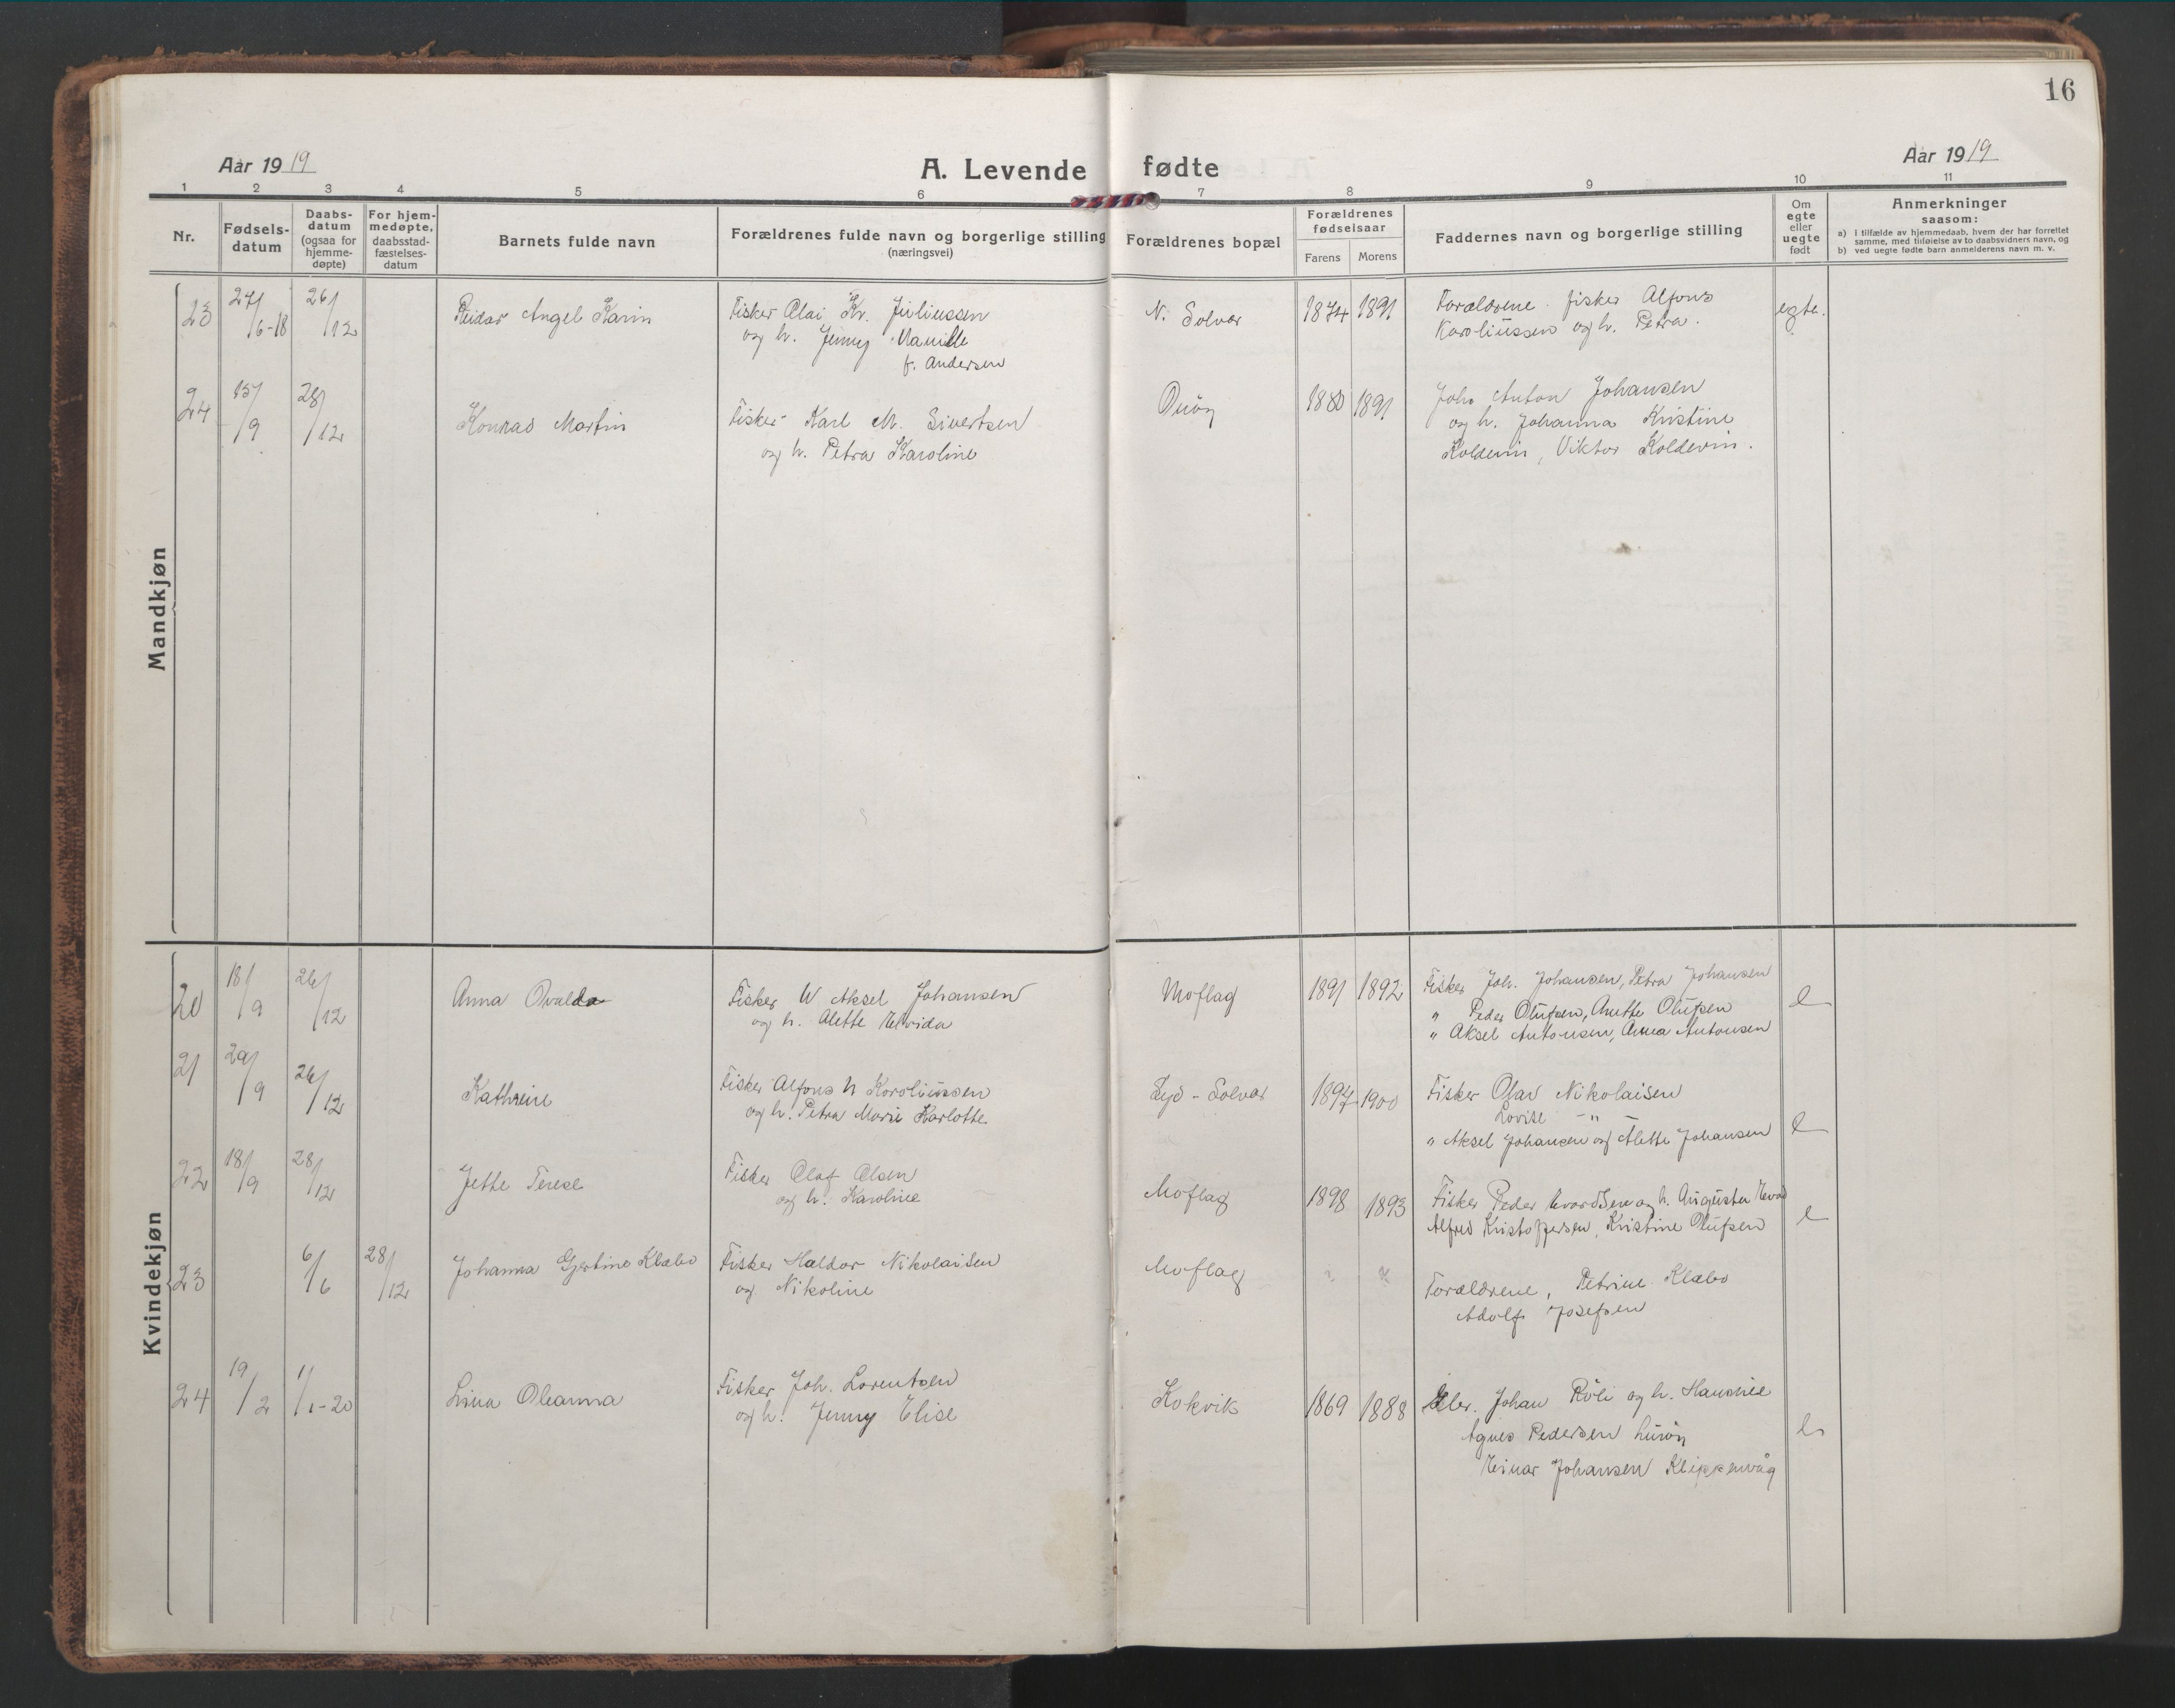 16
Aar 1919
A. Levende fødte
Aar 1919
1 2 3 4 5 6 7 8 9 10 11
Nr.
Fødsels-
datum
Daabs-
datum
(ogsaa for
hjemme-
døpte)
For hjem-
medøpte,
daabsstad-
fæstelses-
datum
Barnets fulde navn
Forældrenes fulde navn og borgerlige stilling
(næringsvei)
Forældrenes bopæl
Forældrenes
fødselsaar
Farens Morens
Faddernes navn og borgerlige stilling
Om
egte
eller
uegte
født
Anmerkninger
saasom:
a) i tilfælde av hjemmedaab, hvem der har forrettet
samme, med tilføielse av to daabsvidners navn, og
b) ved uegte fødte barn anmelderens navn m. v.
Mandkjøn
23 27/6-18 26/12 Reidar Angel Karin Fisker Olai Kr. Juliussen N. Solvær 1874 1891 Forældrene. fisker Alfons egte.
og h. Jenny Karoliussen og h. Petra.
f. Andersen
24 15/9 28/12 Konrad Martin Fisker Karl M. Sivertsen Onøy 1880 1891 Joh. Anton Johansen
og h. Petra Karoline og h. Johanna Kristine
Koldevin, Viktor Koldevin.
Kvindekjøn
20 18/9 26/12 Anna Ovalda Fisker W Aksel Johansen Moflag 1891 1892 Fisker Joh. Johansen, Petra Johansen
og h. Alette Elvida " Peder Olufsen, Anette Olufsen e
" Aksel Antonsen, Anna Antonsen
21 29/9 26/12 Kathrine Fisker Alfons N Karoliussen Syd-Solvær 1897 1900 Fisker Olav Nikolaisen
og h. Petra Marie Karlotte Lovise - " -
" Aksel Johansen og Alette Johansen e
22 18/9 28/12 Jette Terese Fisker Olaf Olsen Moflag 1898 1893 Fisker Peder og h. Augusta
og h. Karoline Alfred Kristoffersen, Kristine Olufsen e
23 6/6 28/12 Johanna Gjertine Klæbo Fisker Haldor Nikolaisen Moflag ? ? Forældrene, Petrine Klæbo
og Nikoline Adolf Josefsen
24 19/2 1/1-20 Lina Oleanna Fisker Joh. Lorentsen Kokvik 1869 1888 Johan Röli og h.
og h. Jenny Elise Agnes Pedersen Lurøy e
Einar Johansen Klippenvåg